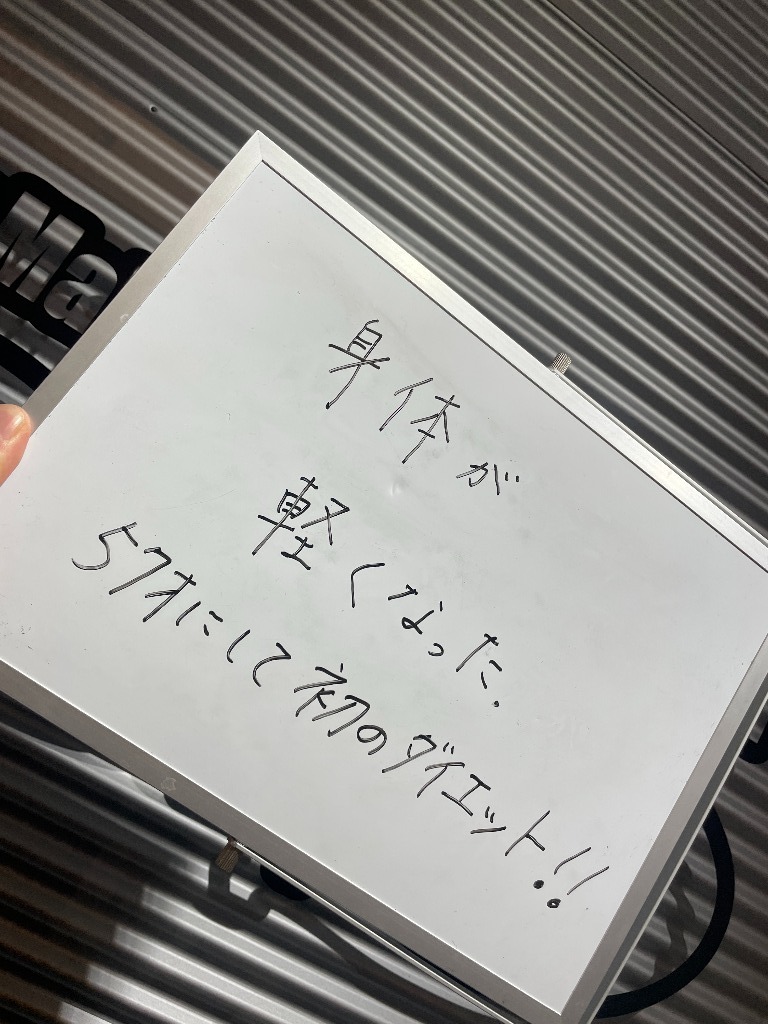 Ma
身体が
軽くなった.
57才にして初のダイエット!!